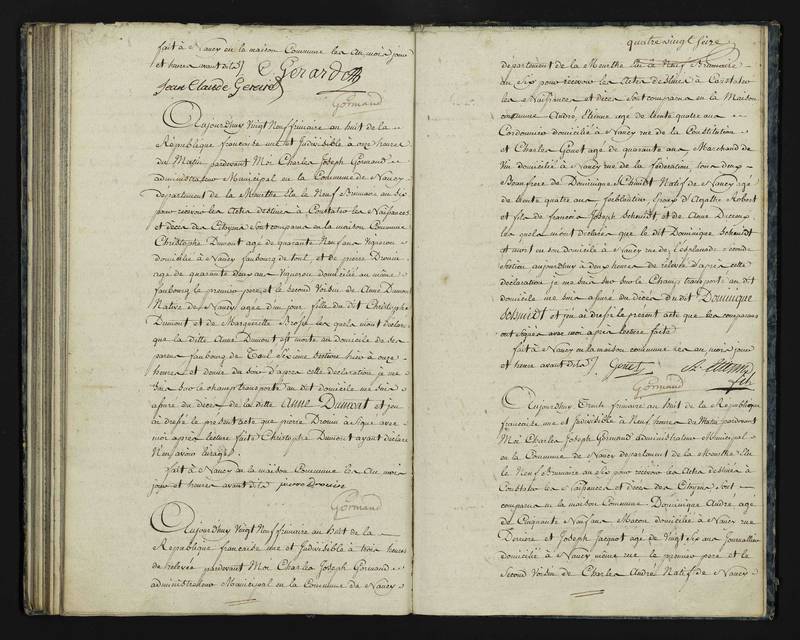 fait à Nancy en la maison Commune les an mois jour
et heures avant dits
Gerard
Jean Claude Gerard
Gormand
Aujourdhuy Vingt Neuf frimaire an huit de la
République francaise une et Indivisible à onze heures
du Matin pardevant Moi Charles Joseph Gormand
administrateur Municipal en la Commune de Nancy
departement de la Meurthe Elu le Neuf Brumaire an Six
pour recevoir les Actes destinés à Constater les Naissances
et décès des Citoyens sont comparus en la maison Commune
Christophe Dumont agé de quarante Neuf ans Vigneron
domicilié à Nancy faubourg de toul, et de pierre Drouin
agé de quarante deux ans Vigneron domicilié au même
faubourg le premier pere et le second Voisin de Anne Dumont
Native de Nancy agée d'un jour fille du dit Christophe
Dumont et de Marguerite les quels m'ont déclaré
que la ditte Anne Dumont est morte au domicile de ses
pere faubourg de Toul Sixieme Section hier à onze
heures et demie du soir D'apres cette déclaration je me
Suis Sur le champ transporté au dit domicile me suis
assuré du décès de la ditte Anne Dumont et j'en
ai dressé le present acte que pierre Drouin a Signé avec
moi apres lecture faite Christophe Dumont ayant déclaré
N'en avoir l'usage
fait à Nancy en la maison Commune les an mois
jour et heures avant dits pierre Drouin
Gormand
Aujourdhuy Vingt Neuf frimaire an huit de la
République francaise une et Indivisible à trois heures
de relevée pardevant Moi Charles Joseph Gormand
administrateur Municipal en la Commune de Nancy
quatre vingt seize
departement de la Meurthe Elu le Neuf Brumaire
an Six pour recevoir les Actes destinés à Constater
les Naissances et décès sont comparus en la Maison
commune André Etienne agé de trente quatre ans
Cordonnier domicilié à Nancy rue de la Constitution
et Charles Gouet agé de quarante ans Marchand de
Vin domicilié à Nancy rue de la fédération tous deux
Beaufrere de Dominique Schmidt Natif de Nancy agé
de trente quatre ans ferblantier Epoux d'Agathe Robert
et fils de francois Joseph Schmidt et de Anne
les quels m'ont declaré que le dit Dominique Schmidt
est mort en son domicile à Nancy rue de l'esplanade
Section aujourdhuy à deux heures de relevée d'après cette
declaration je me suis sur le Champ transporté au dit
domicile me suis assuré du décès du dit Dominique
Schmidt et j'en ai dressé le present acte que les comparans
ont signés avec moi apres lecture faite
fait à Nancy en la maison commune les an mois jour
et heure avant dits Gouet A. Etienne
Gormand
Aujourdhuy Trente frimaire an huit de la République
francaise une et Indivisible à Neuf heures du Matin pardevant
Moi Charles Joseph Gormand administrateur Municipal
en la Commune de Nancy departement de la Meurthe Elu
le Neuf Brumaire an Six pour recevoir les Actes destinés à
Constater les Naissances et décès des Citoyens Sont
comparus en la maison Commune Dominique André agé
de Cinquante Neuf ans Macon domicilié à Nancy rue
Derriere et Joseph Jacquot agé de Vingt Six ans Journallier
domicilié à Nancy même rue le premier pere et le
Second Voisin de Charles André Natif de Nancy